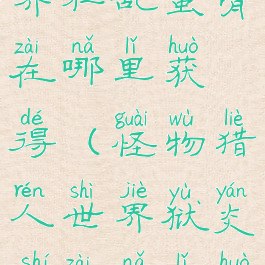 zài nǎ lǐ huò
在哪里获
dé guài wù liè
得（怪物猎
rén shì jiè yù yán
人世界狱炎
shí zài nǎ lǐ huò